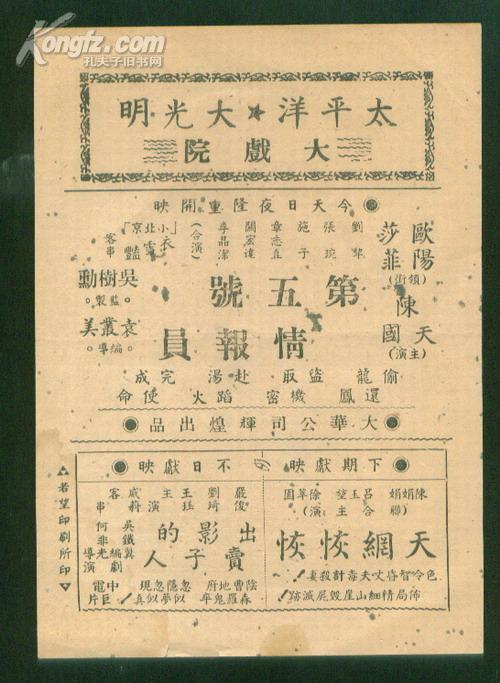 Kongfz.com
孔夫子旧书网
太平洋★大光明
大戲院
今天日夜隆重開映
歐陽莎菲
(領銜)
陳天國
(主演)
劉犖
張琬
施予
章志直
關宏達
李晶潔
(合演)
「小北京」
衣雪艷
客串
吳樹勳
監製
袁叢美
編導
第五號
情報員
偷龍盜取赴湯完成
還鳳機密蹈火使命
大華公司輝煌出品
下期獻映
不日獻映
陳娟娟
呂玉堃
徐莘園
(聯合主演)
天網恢恢
色令智昏丈夫毒計殺妻
佈局情細山崖毀屍滅跡
嚴俊
劉琦
王珏
主演
戚莉
客串
出賣影子的人
吳鐵翼
編劇
何非光
導演
陰曹地府忽隱忽現
森羅鬼卒似夢似真
中電巨片
△若望印刷所印▽